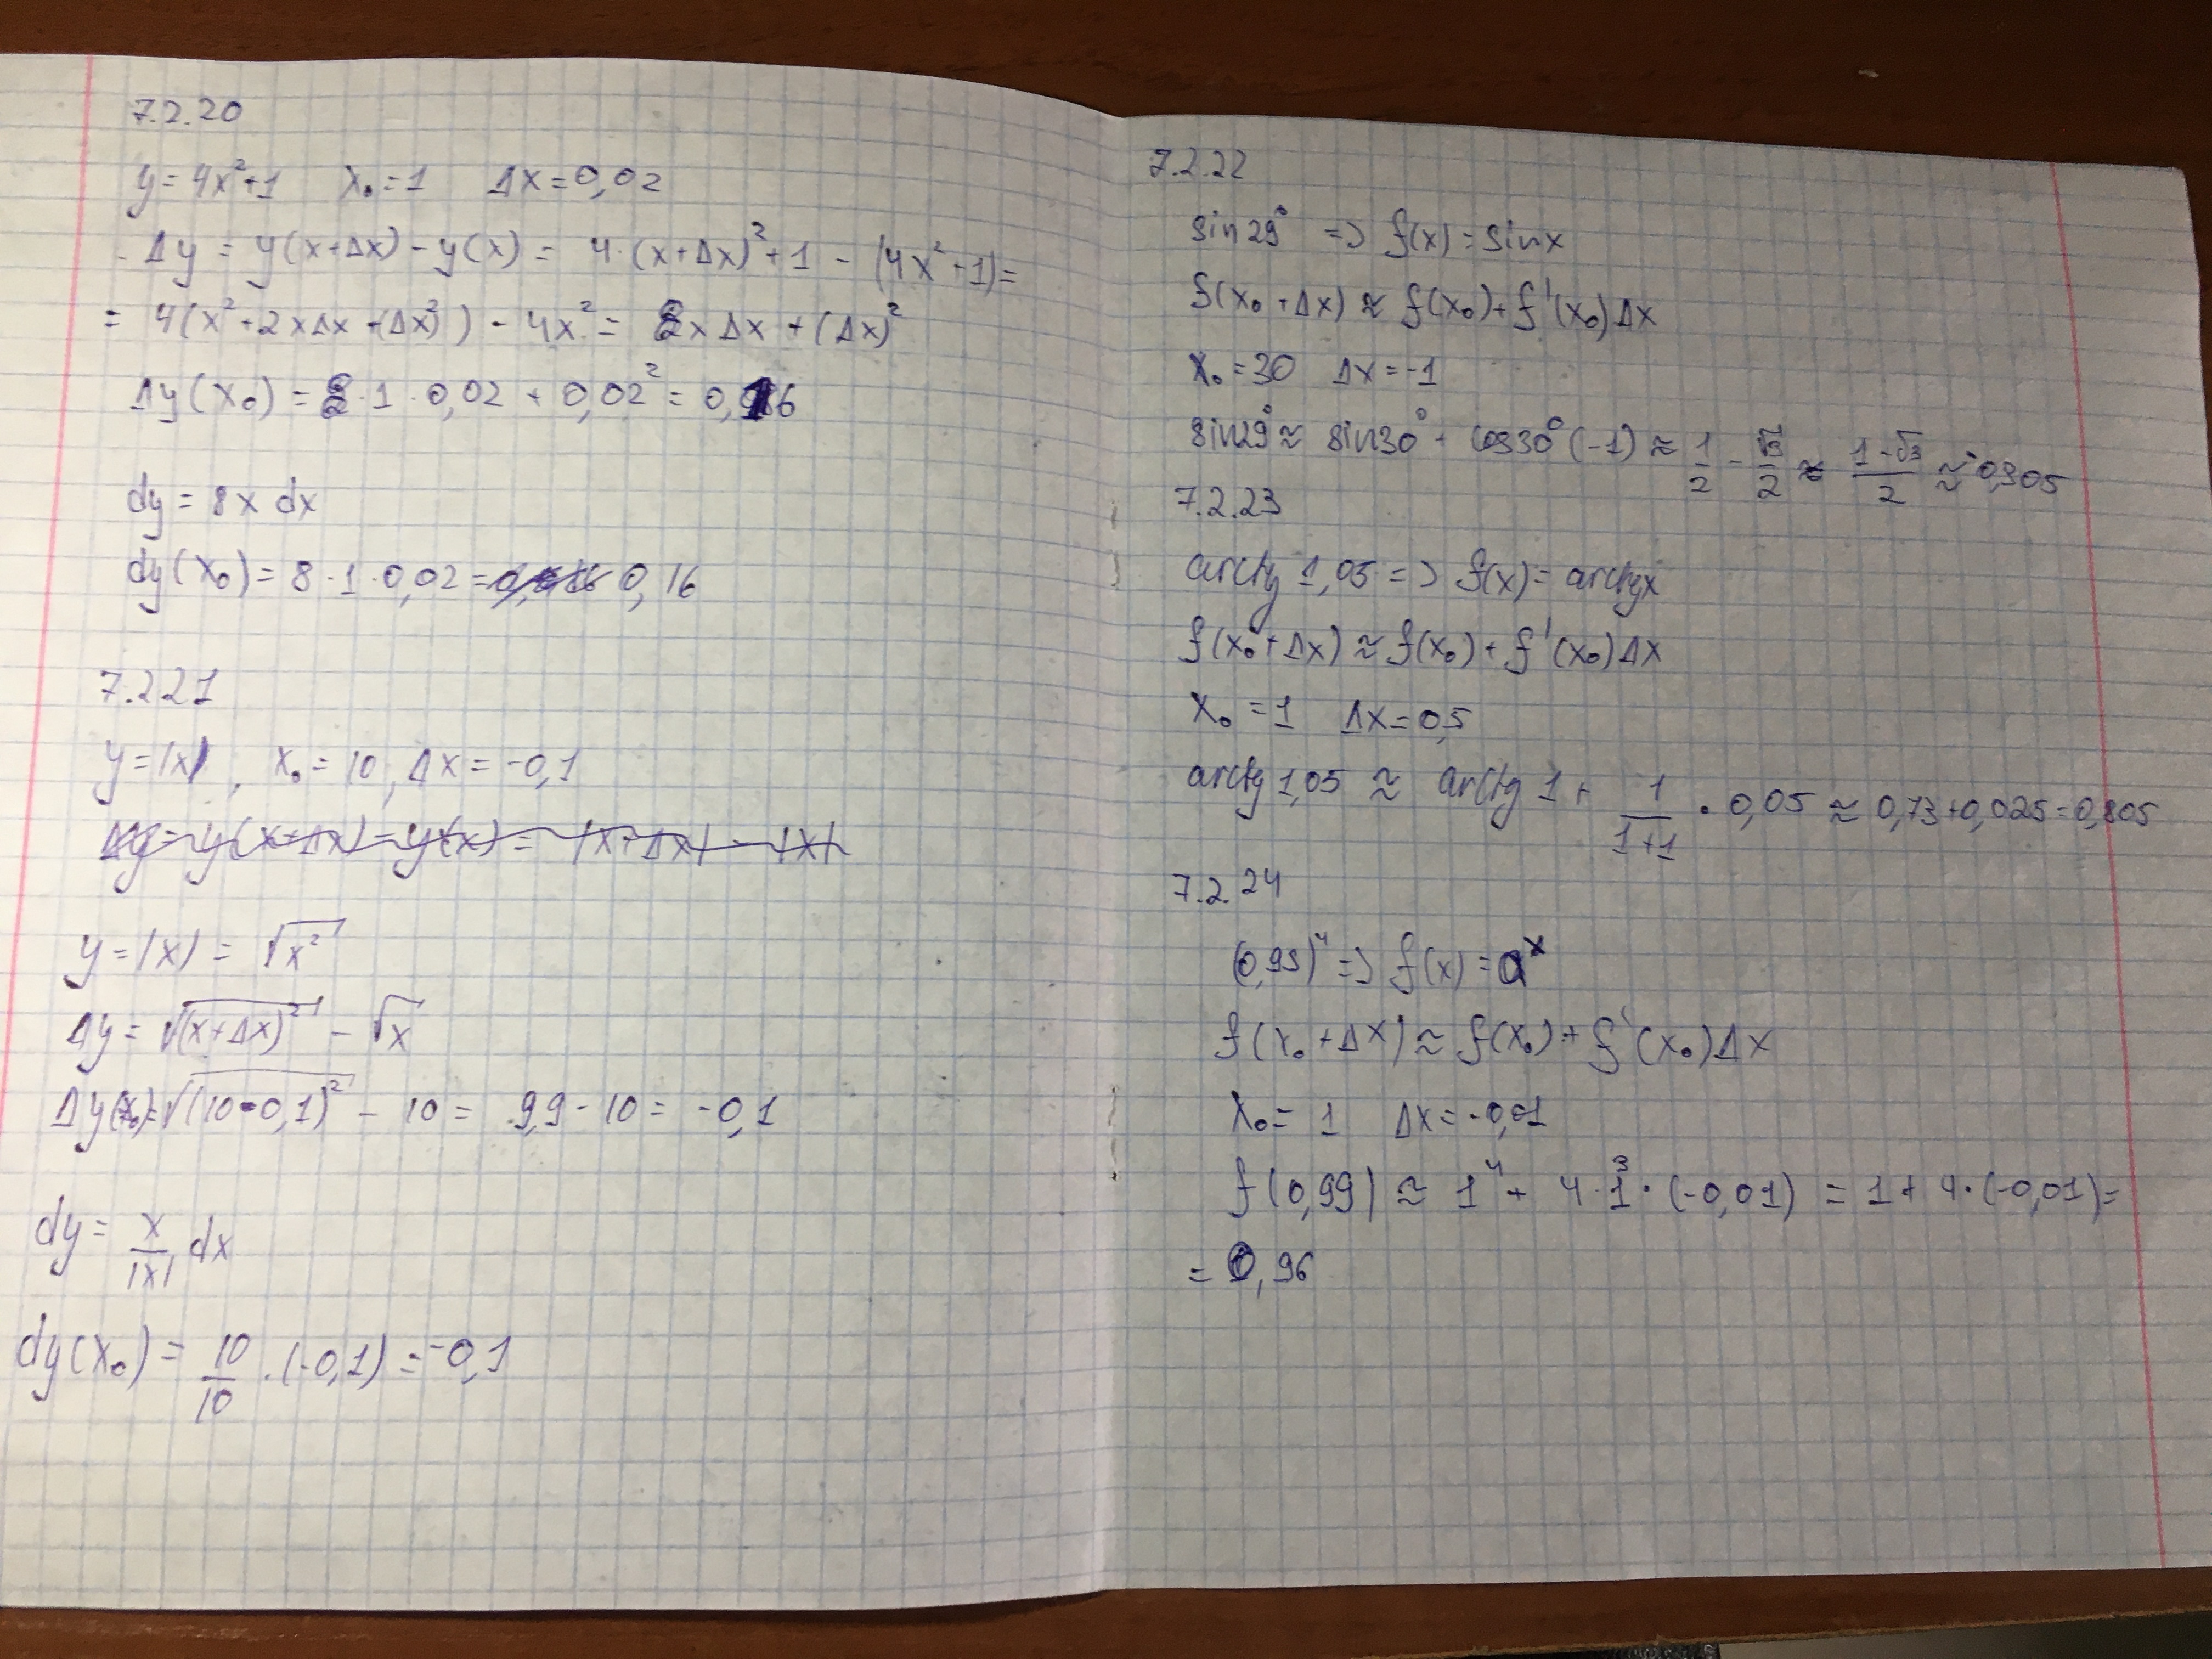 7.2.20
y = 4x²+1   x₀ = 1   Δx = 0,02
Δy = y(x+Δx) - y(x) = 4·(x+Δx)²+1 - (4x²+1) =
= 4(x²+2xΔx+(Δx)²) - 4x² = 8xΔx + (Δx)²
Δy(x₀) = 8·1·0,02 + 0,02² = 0,16
dy = 8x dx
dy(x₀) = 8·1·0,02 = 0,16
7.2 21
y = |x|, x₀ = 10, Δx = -0,1
Δy = y(x+Δx) - y(x) = |x+Δx| - |x|
y = |x| = √x²
Δy = √(x+Δx)² - √x
Δy(x₀) = √(10-0,1)² - 10 = 9,9 - 10 = -0,1
dy = x/|x| dx
dy(x₀) = 10/10 · (-0,1) = -0,1
7.2.22
sin 29° => f(x) = sin x
f(x₀+Δx) ≈ f(x₀) + f'(x₀)Δx
x₀ = 30   Δx = -1
sin29° ≈ sin30° + cos30°(-1) ≈ 1/2 - √3/2 ≈ (1-√3)/2 ≈ -0,305
7.2.23
arctg 1,05 => f(x) = arctgx
f(x₀+Δx) ≈ f(x₀) + f'(x₀)Δx
x₀ = 1   Δx = 0,5
arctg 1,05 ≈ arctg 1 + 1/(1+1) · 0,05 ≈ 0,73+0,025 = 0,805
7.2.24
(0,99)⁴ => f(x) = aˣ
f(x₀+Δx) ≈ f(x₀) + f'(x₀)Δx
x₀ = 1   Δx = -0,01
f(0,99) ≈ 1⁴ + 4·1³·(-0,01) = 1 + 4·(-0,01) =
= 0,96